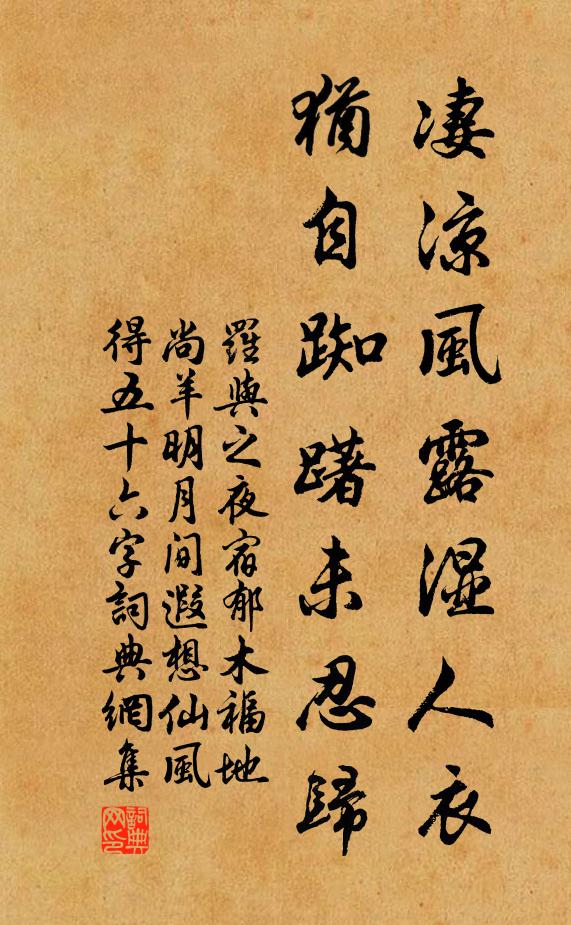 凄涼風露濕人衣
猶自踟躇未忍歸
羅與之夜宿郁木福地
尚羊明月間遐想仙風
得五十六字詞典網集
詞典網印